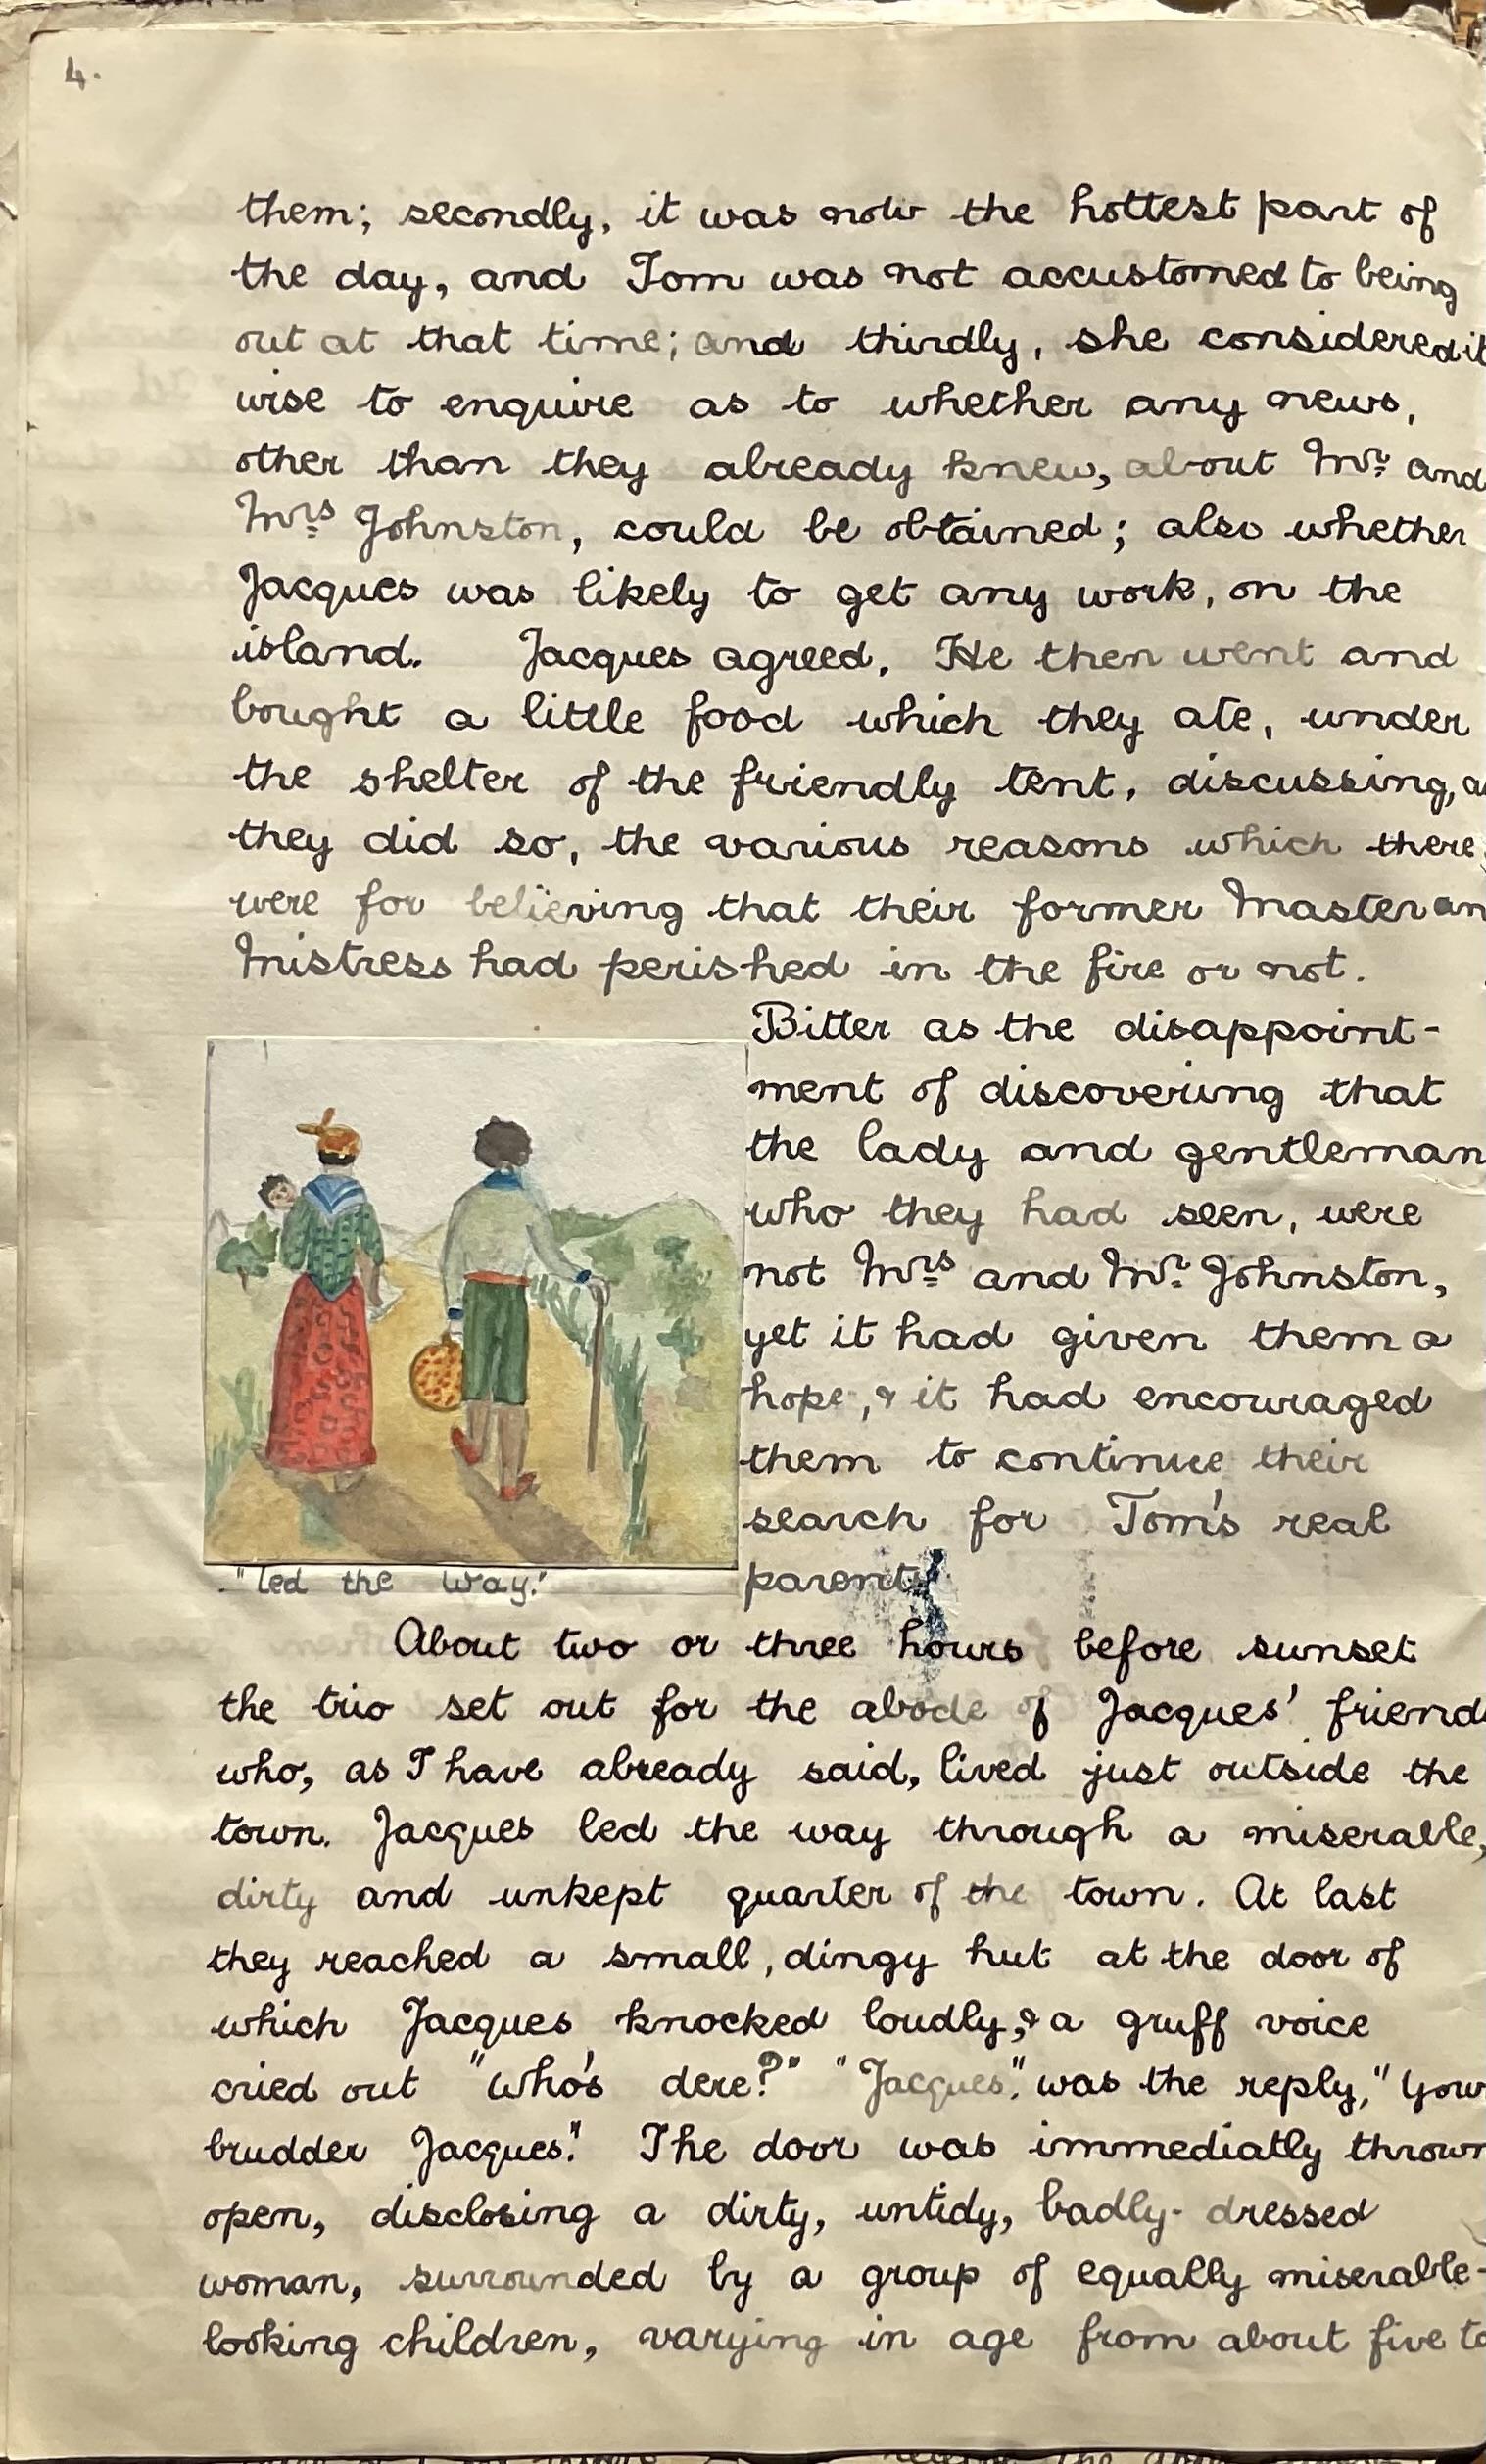 4.
them; secondly, it was now the hottest part of
the day, and Tom was not accustomed to being
out at that time; and thirdly, she considered it
wise to enquire as to whether any news,
other than they already knew, about Mr. and
Mrs Johnston, could be obtained; also whether
Jacques was likely to get any work, on the
island. Jacques agreed. He then went and
bought a little food which they ate, under
the shelter of the friendly tent, discussing,
they did so, the various reasons which there
were for believing that their former Master an
Mistress had perished in the fire or not.
Bitter as the disappoint-
ment of discovering that
the lady and gentleman
who they had seen, were
not Mrs and Mr. Johnston,
yet it had given them a
hope, & it had encouraged
them to continue their
search for Tom's real
parents.
"led the way."
About two or three hours before sunset
the trio set out for the abode of Jacques' friend
who, as I have already said, lived just outside the
town. Jacques led the way through a miserable,
dirty and unkept quarter of the town. At last
they reached a small, dingy hut at the door of
which Jacques knocked loudly, & a gruff voice
cried out "who's dere?" "Jacques", was the reply, "your
brudder Jacques." The door was immediatly thrown
open, disclosing a dirty, untidy, badly-dressed
woman, surrounded by a group of equally miserable-
looking children, varying in age from about five to